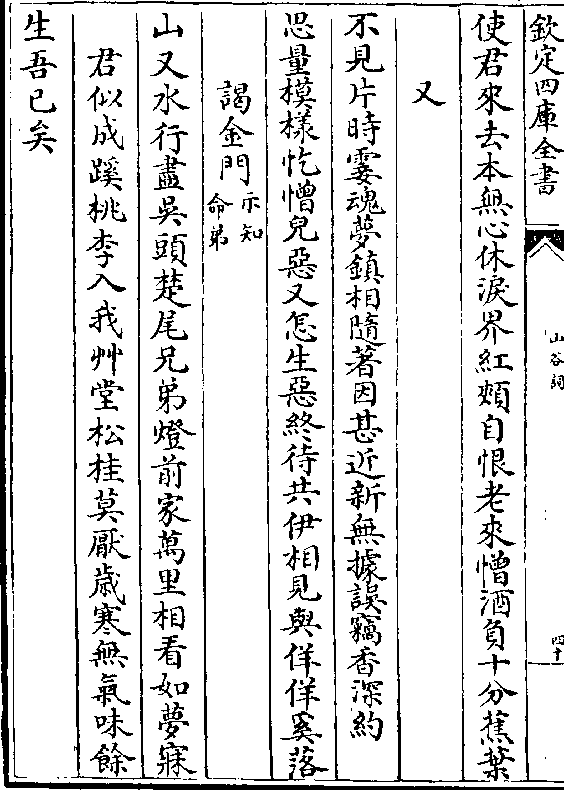 欽定四庫全書
山谷詞
四十
使君來去本無心休淚界紅頰自恨老來憎酒負十分蕉葉
又
不見片時霎魂夢鎮相隨著因甚近新無據誤竊香深約
思量模樣忔憎兒惡又怎生惡終待共伊相見與佯佯奚落
謁金門示知命弟
山又水行盡吳頭楚尾兄弟燈前家萬里相看如夢寐
君似成蹊桃李入我艸堂松桂莫厭歲寒無氣味餘
生吾已矣